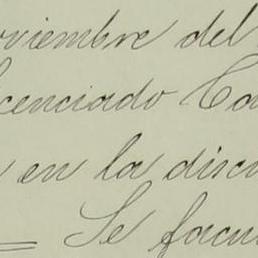 oviembre del
icenciado Ca
en la discu
Se facul